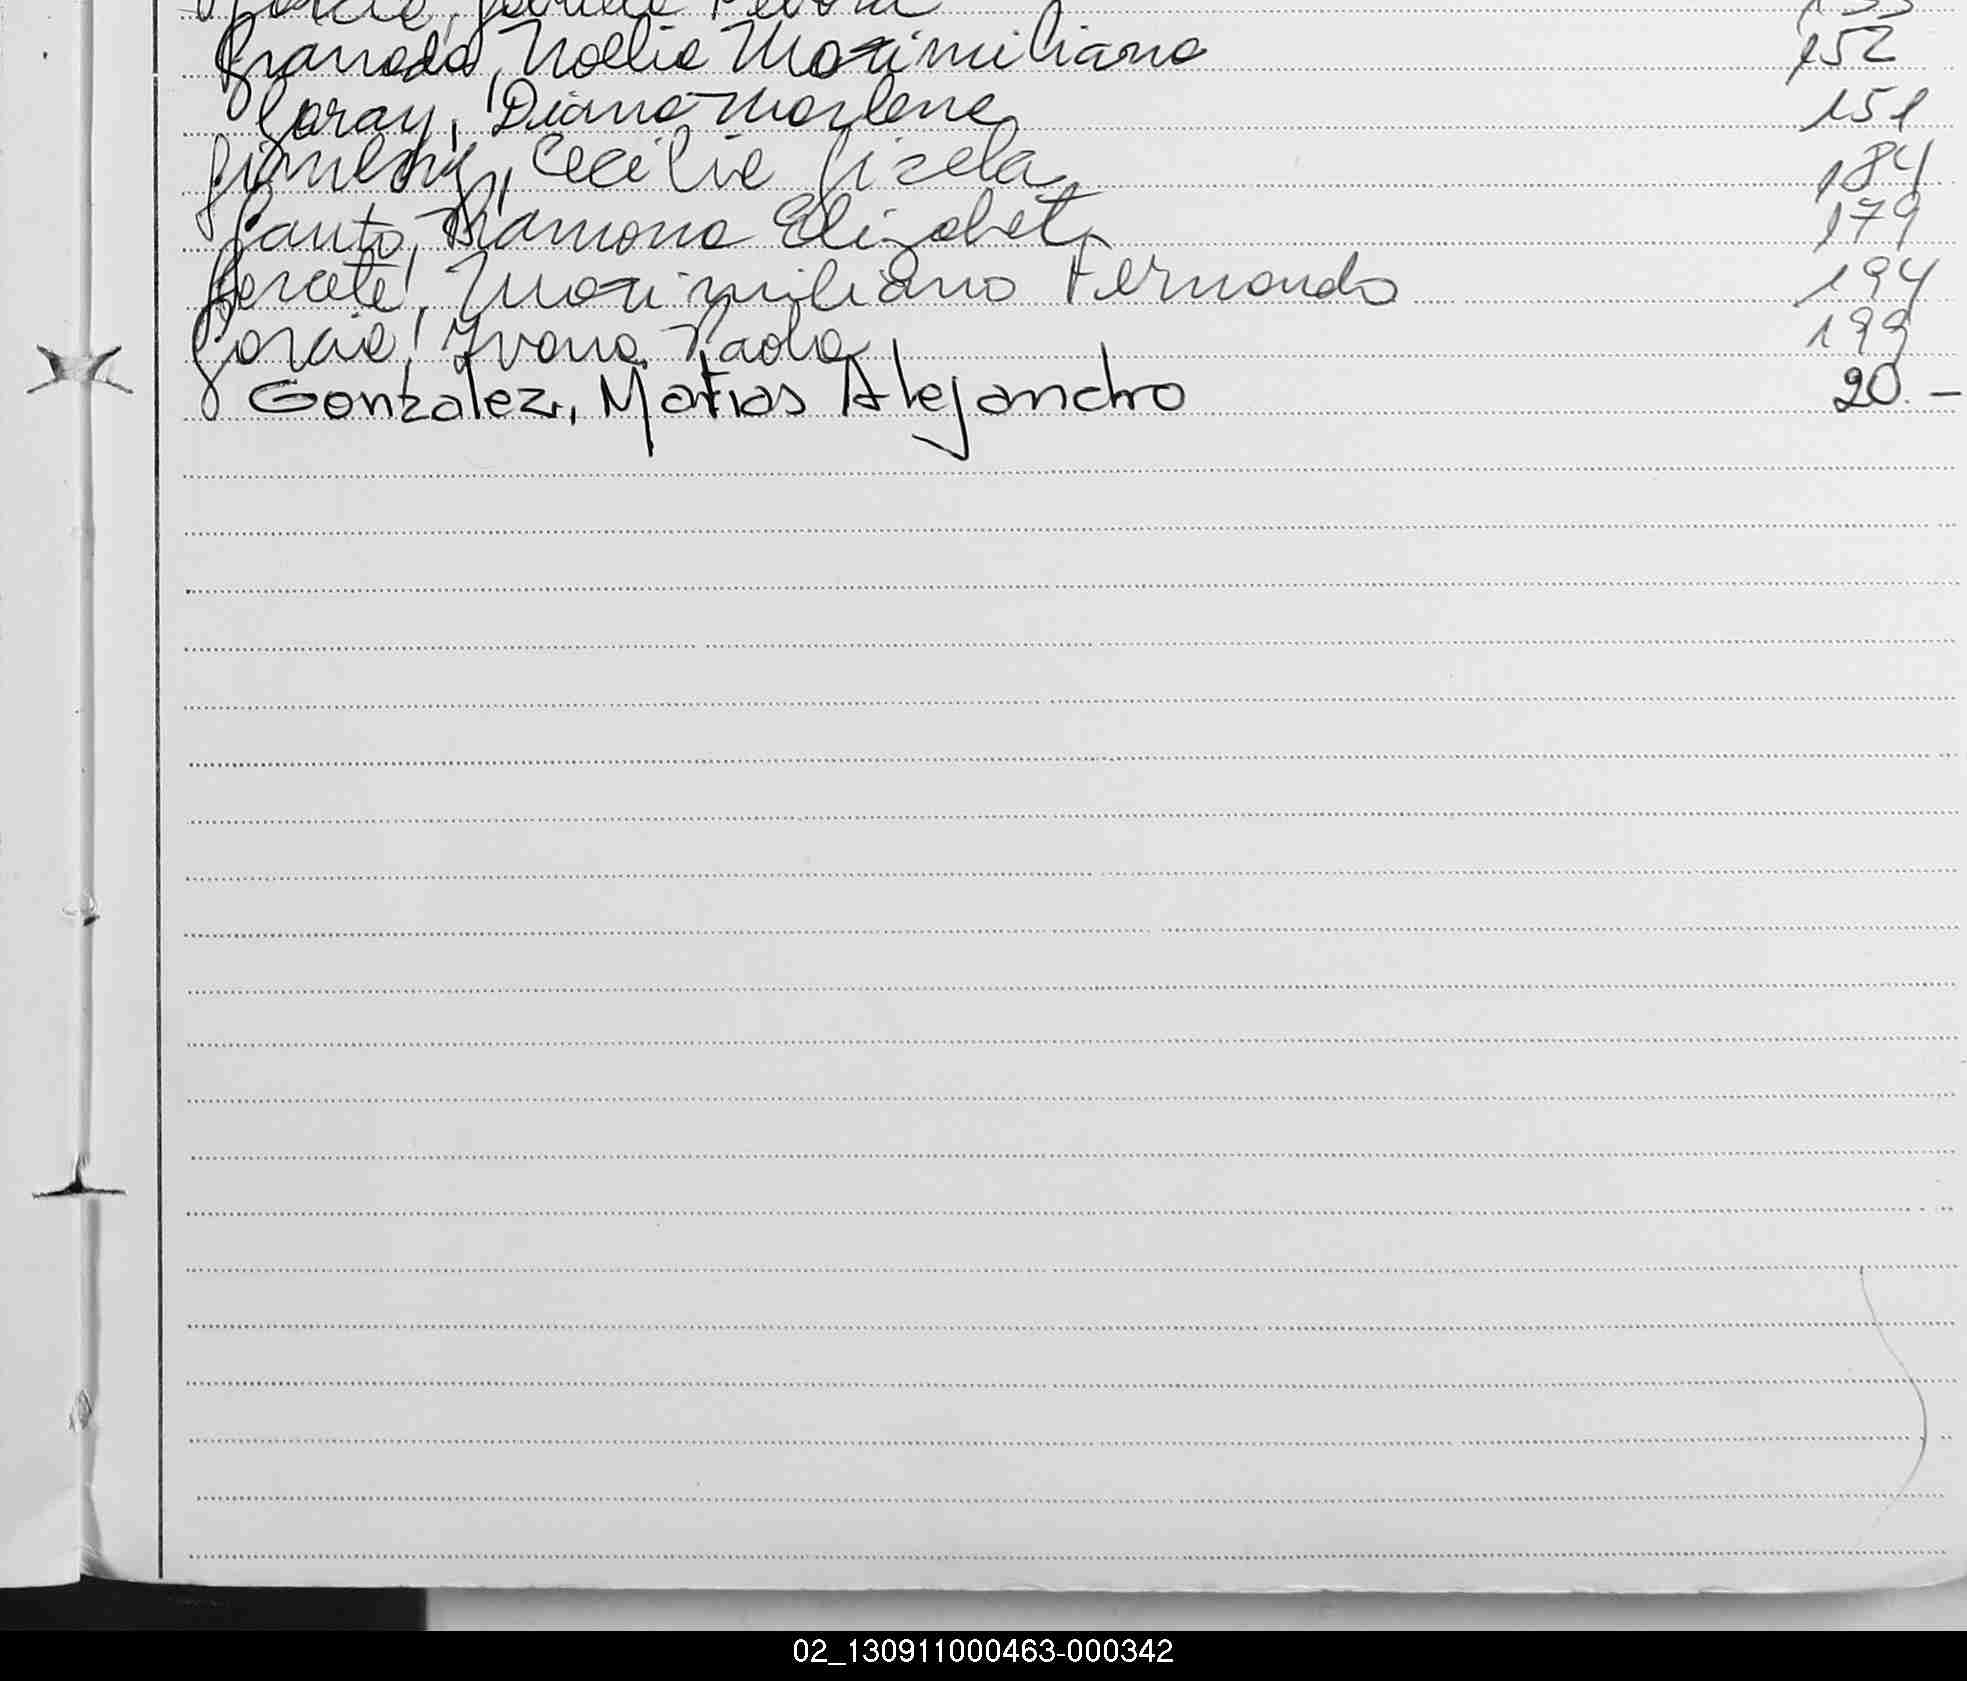 Granado, Noelia Maximiliana 152
Garay, Diana Marlene 151
Gimenez, Cecilia Gisela 184
Gauto, Ramona Elizabet 179
Maximiliano Fernando 194
Garcia, Ivana Paola 199
Gonzalez, Matias Alejandro 20.-
02_130911000463-000342